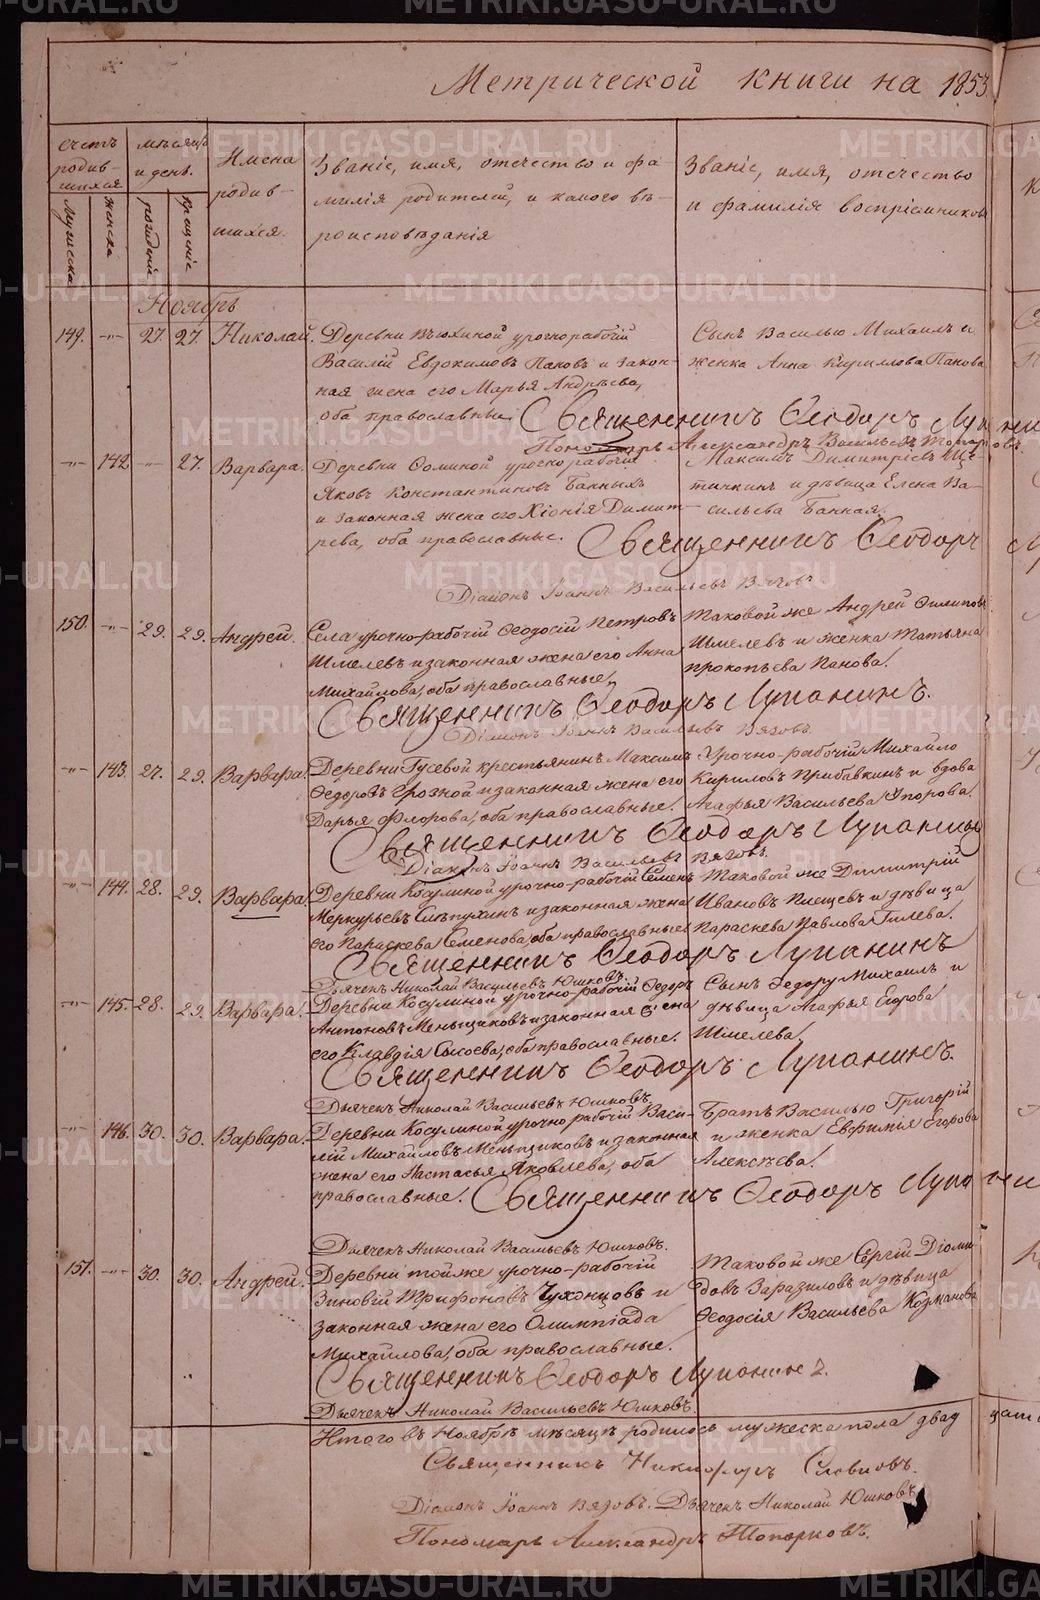 Метрической книги на 1853
счетъ родив-шихся
мѣсяцъ и день.
Имена родив-шихся.
Званіе, имя, отечество и фа-
милія родителей, и какого вѣ-
роисповѣданія
Званіе, имя, отечество
и фамилія воспріемниковъ
мужеска
женска
рожденія
крещенія
Ноябрь
149. -"- 27. 27. Николай. Деревни Вьюхиной урочнорабочій
Василій Евдокимовъ Пановъ и закон-
ная жена его Марья Андрѣева,
оба православные.
Сынъ Василью Михаилъ и
женка Анна Кирилова Панова
Священникъ Ѳеодоръ Лупанин
Пономарь Александръ Васильевъ Топорковъ.
-"- 142. -"- 27. Варвара. Деревни Фоминой урочнорабочій
Яковъ Константиновъ Банныхъ
и законная жена его Хіонія Димит-
рева, оба православные.
Максимъ Димитріевъ Ще-
тичкинъ и дѣвица Елена Ва-
сильева Банная.
Священникъ Ѳеодоръ
Діаконъ Іоаннъ Васильевъ Вяговъ.
150. -"- 29. 29. Андрей. Села урочно-рабочій Ѳеодосій Петровъ
Шмелевъ и законная жена его Анна
Михайлова, оба православные,
таковой же Андрей Филиповъ
Шмелевъ и женка Татьяна
Прокопьева Панова.
Священникъ Ѳеодоръ Лупанинъ.
Діаконъ Іоаннъ Васильевъ Вяговъ.
-"- 143. 27. 29. Варвара. Деревни Гусевой крестьянинъ Максимъ
Ѳедоровъ Грозной и законная жена его
Дарья Флорова, оба православные.
Урочно-рабочій Михайло
Кириловъ Прибавкинъ и вдова
Агафья Васильева Упорова.
Священникъ Ѳеодоръ Лупанинъ
Діаконъ Іоаннъ Васильевъ Вяговъ.
-"- 144. 28. 29. Варвара. Деревни Косулиной урочно-рабочій Семенъ
Меркурьевъ Слѣпухинъ и законная жена
его Параскева Семенова, оба православные
таковой же Димитрій
Ивановъ Плещевъ и дѣвица
Параскева Павлова Гилева.
Священникъ Ѳеодоръ Лупанинъ
Дьячекъ Николай Васильевъ Юшковъ.
-"- 145. 28. 29. Варвара. Деревни Косулиной урочно-рабочій Ѳедоръ
Антоновъ Меньщиковъ и законная жена
его Клавдія Сысоева, оба православные.
Сынъ Ѳедору Михаилъ и
дѣвица Агафья Егорова
Шмелева,
Священникъ Ѳеодоръ Лупанинъ.
Дьячекъ Николай Васильевъ Юшковъ.
-"- 146. 30. 30. Варвара. Деревни Косулиной урочно рабочій Васи-
лій Михайловъ Меньщиковъ и законная
жена его Настасья Яковлева, оба
православные.
Братъ Василью Григорій
и женка Евфимія Егорова
Алексѣева.
Священникъ Ѳеодоръ Лупанин
Дьячекъ Николай Васильевъ Юшковъ.
151. -"- 30. 30. Андрей. Деревни той же урочно-рабочій
Зиновій Трифоновъ Чухонцовъ и
законная жена его Олимпіада
Михайлова, оба православные.
Таковой же Сергій Діоми-
довъ Заразиловъ и дѣвица
Ѳеодосія Васильева Козманова
Священникъ Ѳеодоръ Лупанинъ.
Дьячекъ Николай Васильевъ Юшковъ
Итого въ Ноябрѣ мѣсяцѣ родилось мужеска пола двад
Священникъ Никифоръ Словцовъ.
Діаконъ Іоаннъ Вяговъ. Дьячекъ Николай Юшковъ.
Пономарь Александръ Топорковъ.
METRIKI.GASO-URAL.RU